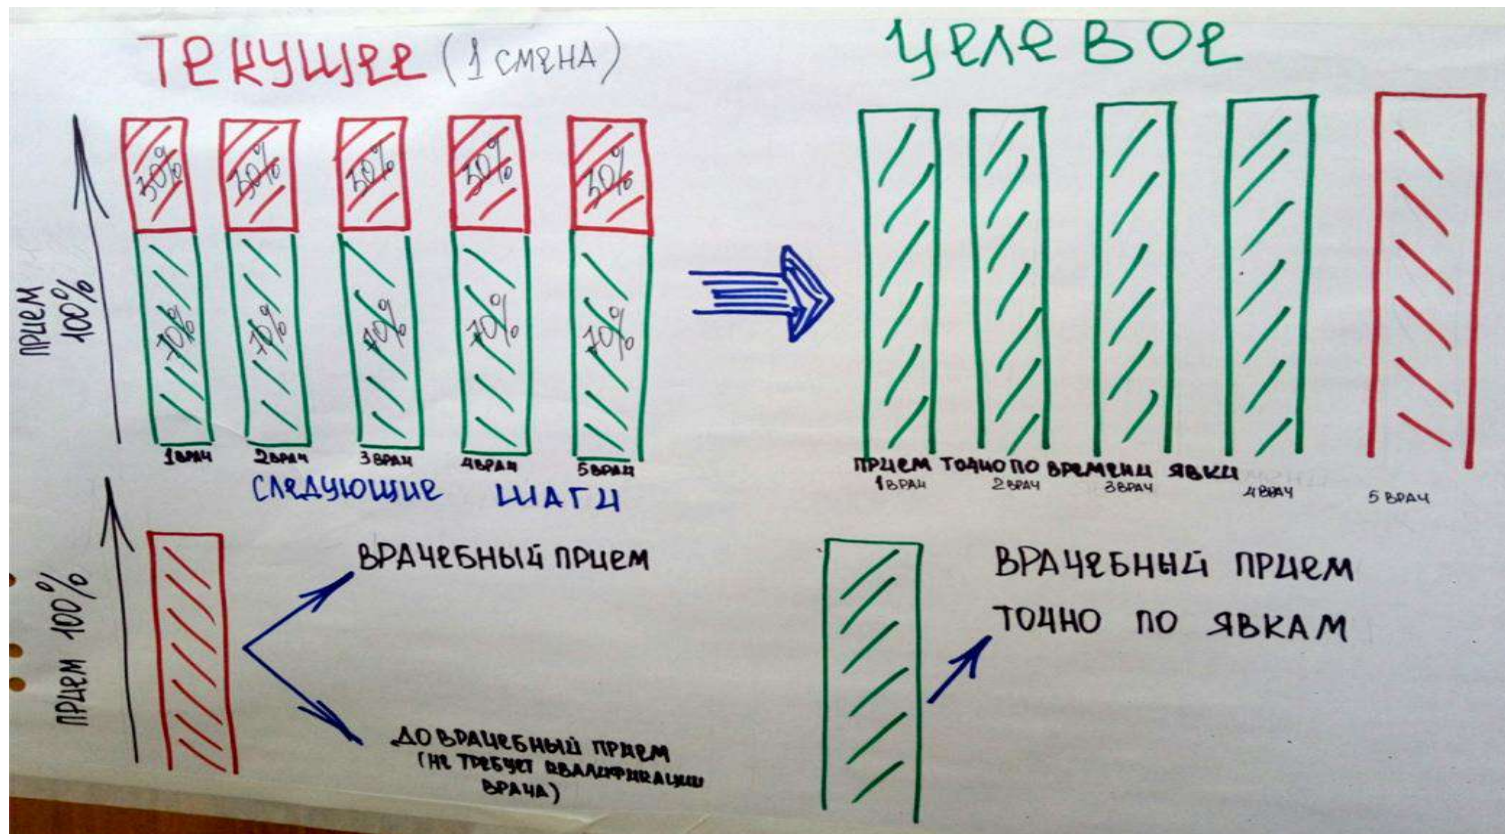 ТЕКУЩЕЕ (1 СМЕНА)
ПРИЕМ 100%
30% 30% 30% 30% 30%
70% 70% 70% 70% 70%
1 ВРАЧ 2 ВРАЧ 3 ВРАЧ 4 ВРАЧ 5 ВРАЧ
ЦЕЛЕВОЕ
ПРИЕМ ТОЧНО ПО ВРЕМЕНИ ЯВКИ
1 ВРАЧ 2 ВРАЧ 3 ВРАЧ 4 ВРАЧ 5 ВРАЧ
СЛЕДУЮЩИЕ ШАГИ
ПРИЕМ 100%
ВРАЧЕБНЫЙ ПРИЕМ
ДО ВРАЧЕБНЫЙ ПРИЕМ
(НЕ ТРЕБУЕТ КВАЛИФИКАЦИИ
ВРАЧА)
ВРАЧЕБНЫЙ ПРИЕМ
ТОЧНО ПО ЯВКАМ